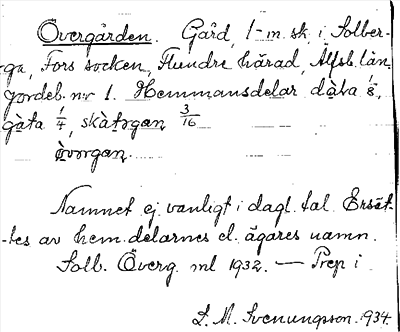 Övergården. Gård, 1-m. sk. i Solber-
ga, Fors socken, Flundre härad, Älfsb. län,
jordeb. nr 1. Hemmansdelar dàta 1/8,
gàta 1/4, skàtọgan 3/16
òvọrgan.
Namnet ej vanligt i dagl. tal Ersät-
tes av hem. delarnes el. ägares namn.
Solb. Överg. ml 1932. — Prep i
S. M. Svenungson. 1934.